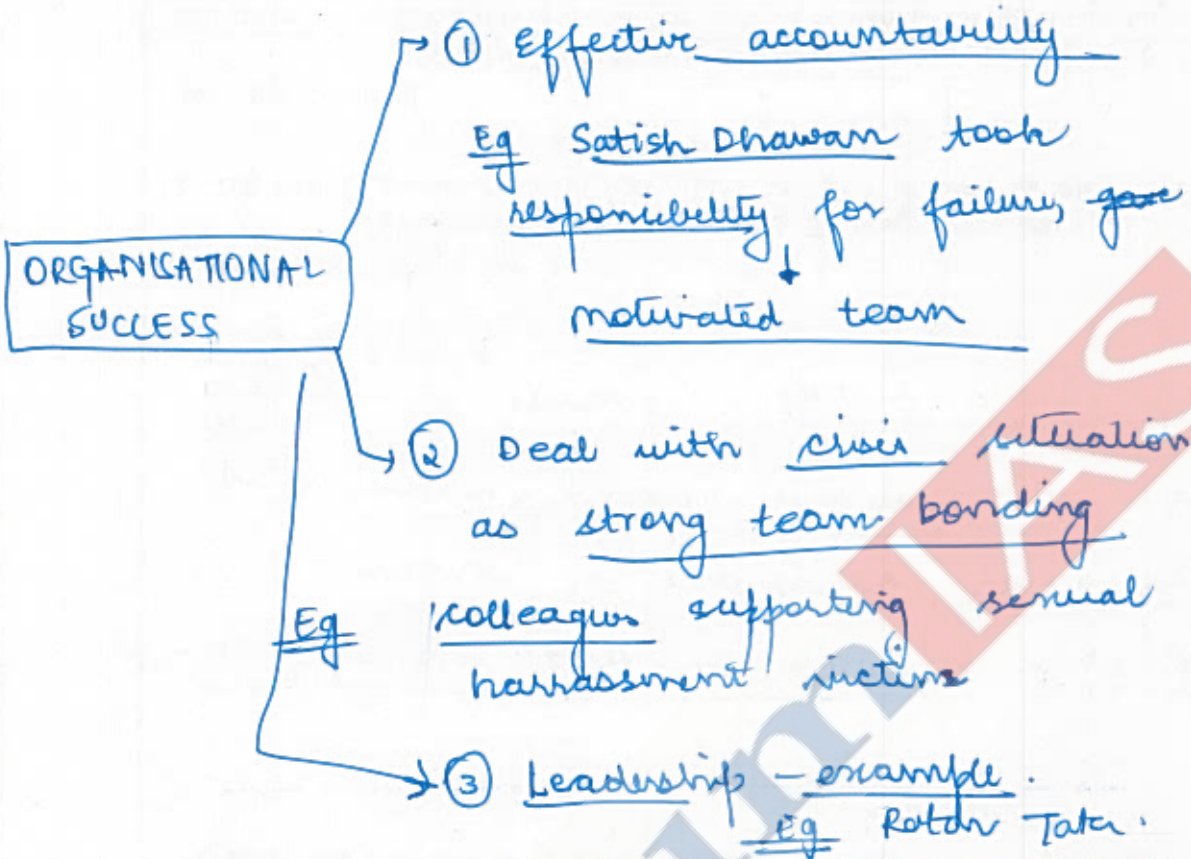 ① Effective accountability
Eg Satish Dhawan took
responsibility for failure, gave
↓
motivated team
ORGANISATIONAL
SUCCESS
② Deal with crisis situation
as strong team bonding
Eg colleagues supporting sexual
harrassment victims
③ Leadership - example.
Eg Ratan Tata.
IAS
um